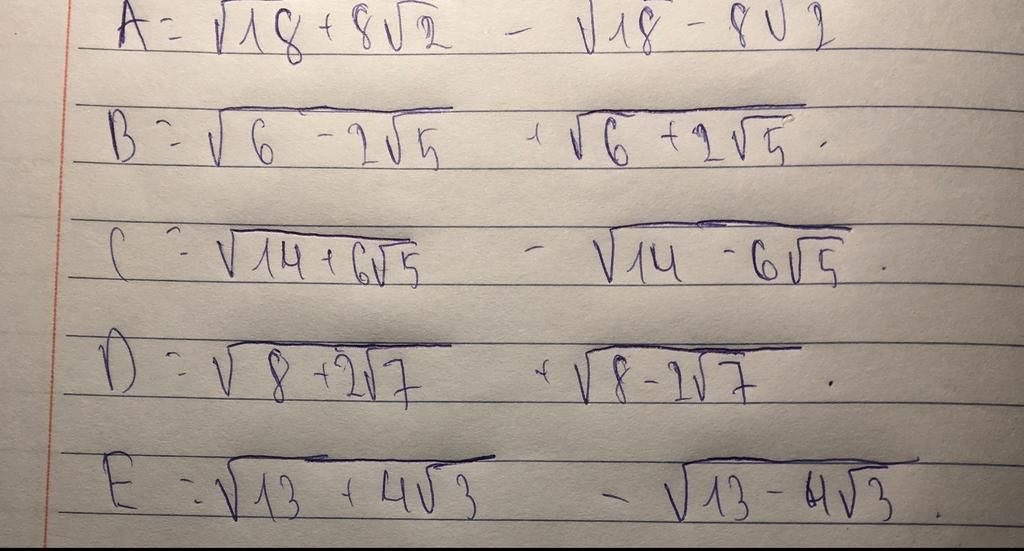 A = √18 + 8√2 - √18 - 8√2
B = √6 - 2√5 + √6 + 2√5 .
C = √14 + 6√5 - √14 - 6√5 .
D = √8 + 2√7 + √8 - 2√7 .
E = √13 + 4√3 - √13 - 4√3 .